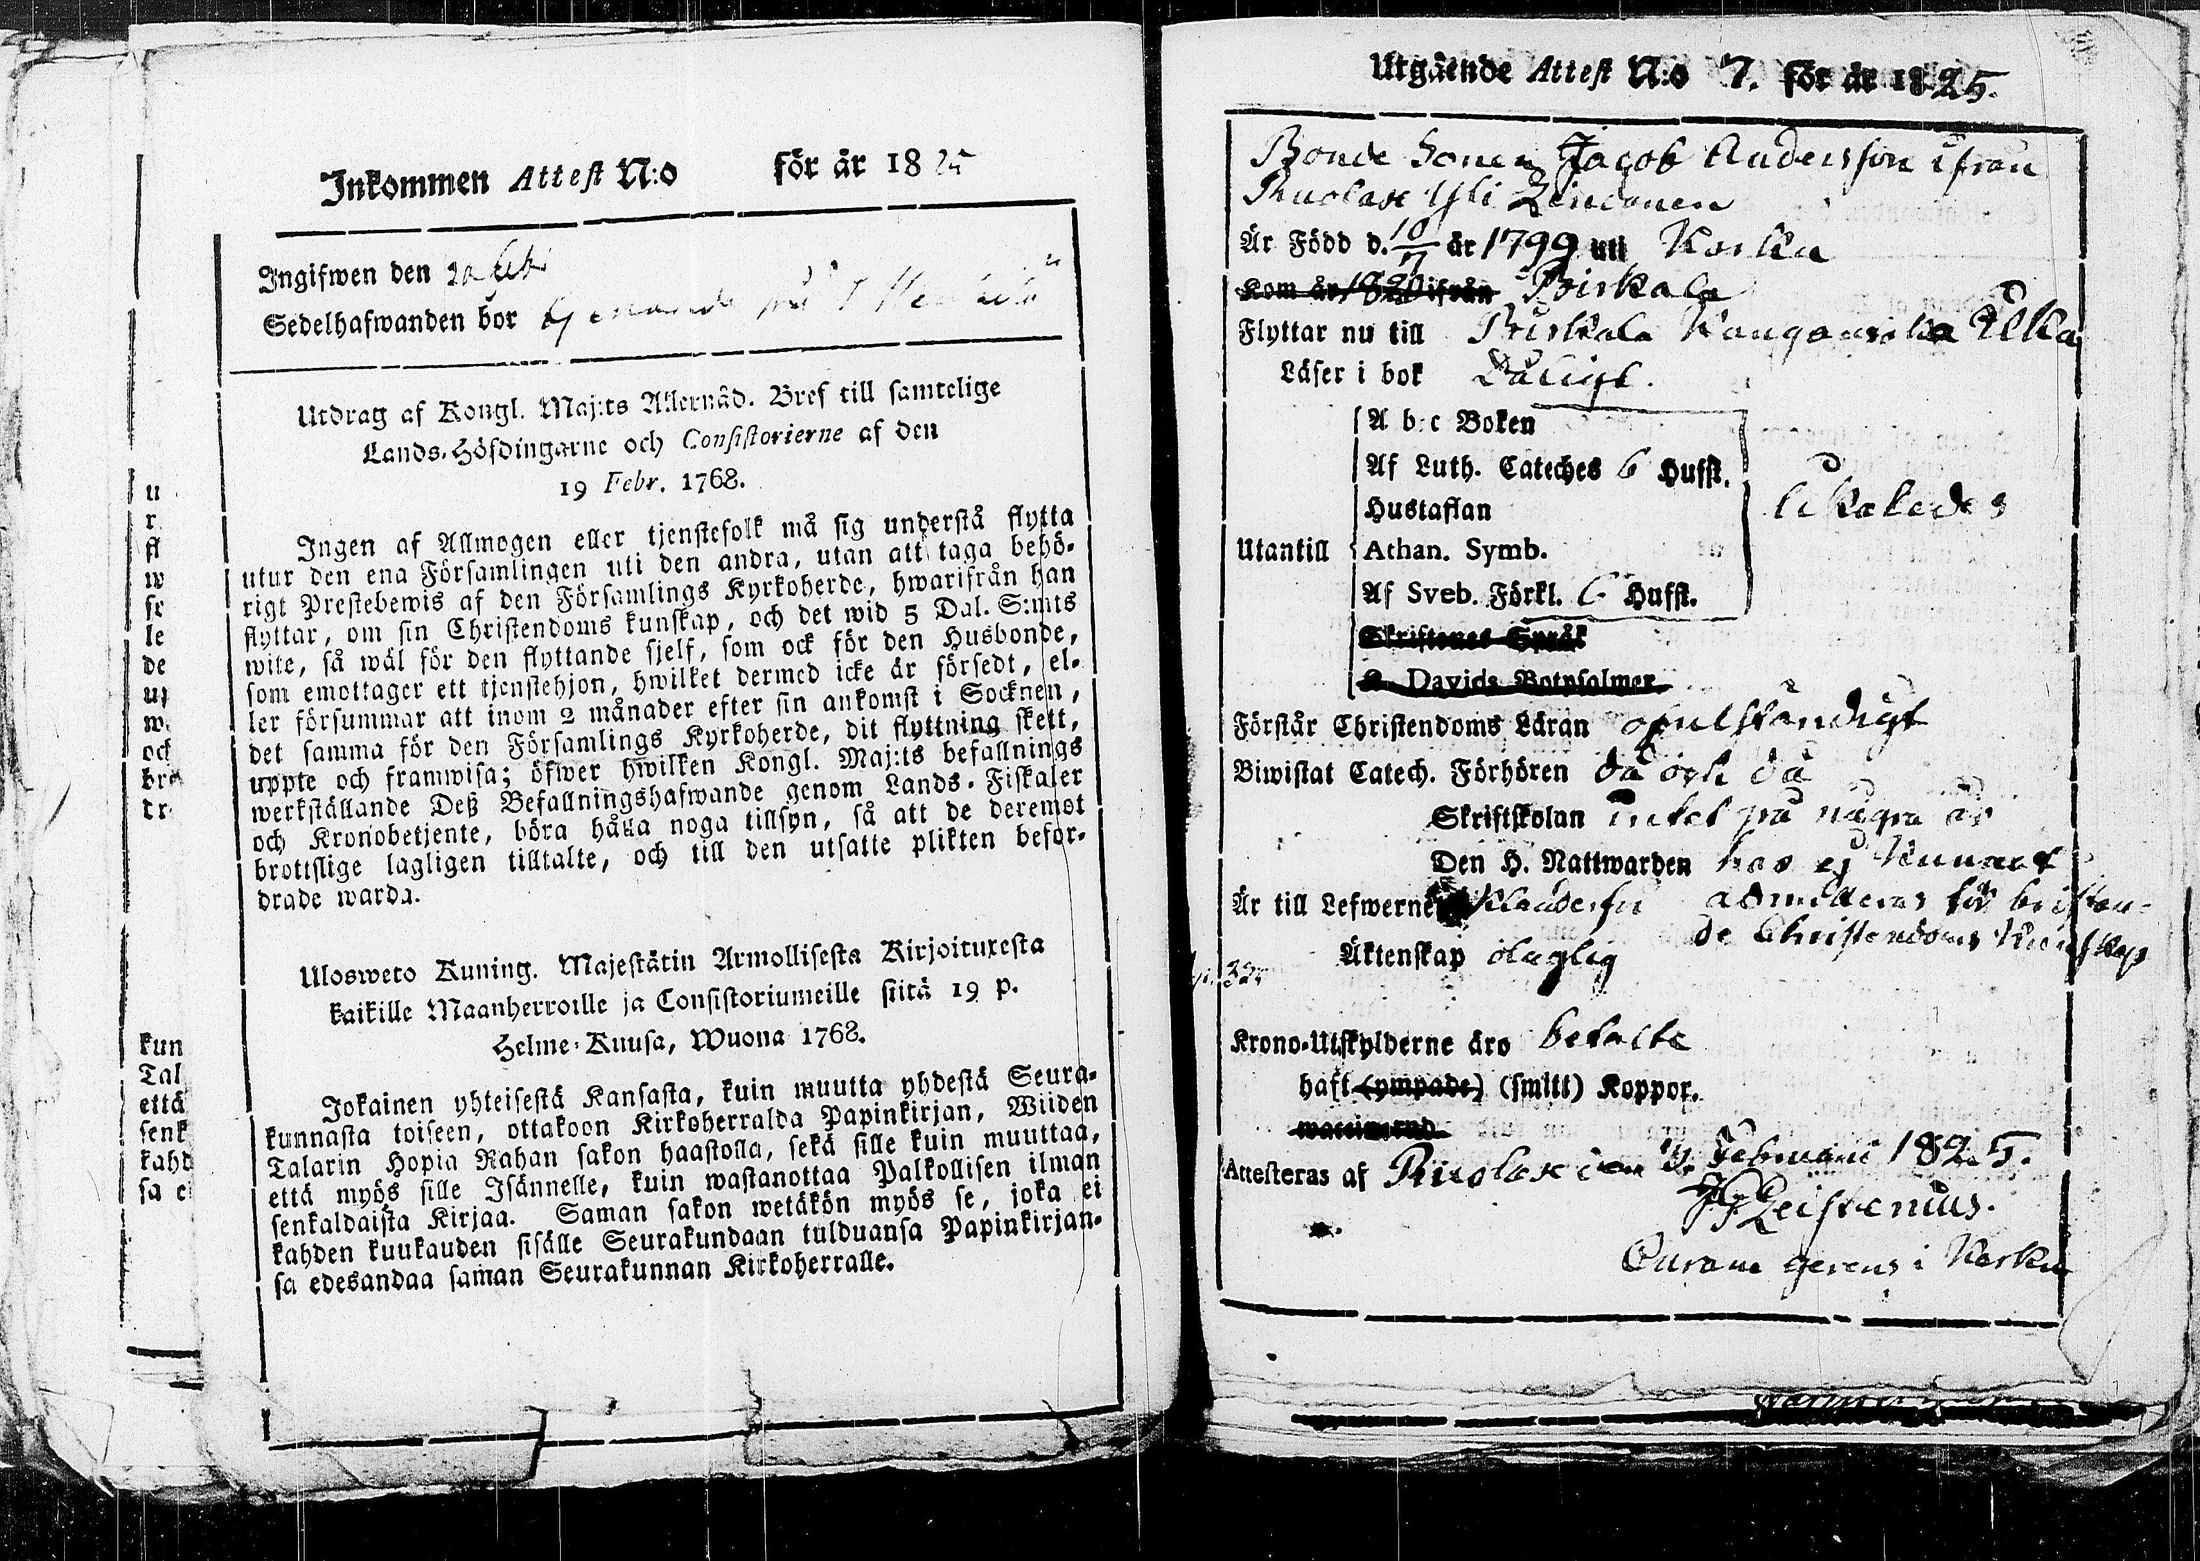 u
r
fl
w
se
le
de
up
w
och
bro
dr
kun
Tal
että
senk
kahd
sa e
Inkommen Attest N:o för år 1825
Ingifwen den 20 Feb.
Sedelhafwanden bor tjenande på
Utdrag af Kongl. Maj:ts Allernåd. Bref till samtelige
Lands-Höfdingarne och Consistorierne af den
19 Febr. 1768.
Ingen af Allmogen eller tjenstefolk må sig understå flytta
utur den ena Församlingen uti den andra, utan att taga behö-
rigt Prestebewis af den Församlings Kyrkoherde, hwarifrån han
flyttar, om sin Christendoms kunskap, och det wid 5 Dal. S:mts
wite, så wäl för den flyttande sjelf, som ock för den Husbonde,
som emottager ett tjenstehjon, hwilket dermed icke är försedt, el-
ler försummar att inom 2 månader efter sin ankomst i Socknen,
det samma för den Församlings Kyrkoherde, dit flyttning skett,
uppte och framwisa; öfwer hwilken Kongl. Maj:ts befallnings
werkställande Deß Befallningshafwande genom Lands-Fiskaler
och Kronobetjente, böra hålla noga tillsyn, så att de deremot
brottslige lagligen tilltalte, och till den utsatte plikten befor-
drade warda.
Ulosweto Kuning. Majestätin Armollisesta Kirjoituxesta
kaikille Maanherroille ja Consistoriumeille siitä 19 p.
Helme-Kuusa, Wuona 1768.
Jokainen yhteisestä Kansasta, kuin muutta yhdestä Seura-
kunnasta toiseen, ottakoon Kirkoherralda Papinkirjan, Wiiden
Talarin Hopia Rahan sakon haastolla, sekä sille kuin muuttaa,
että myös sille Isännelle, kuin wastanottaa Palkollisen ilman
senkaldaista Kirjaa. Saman sakon wetäkön myös se, joka ei
kahden kuukauden sisälle Seurakundaan tulduansa Papinkirjan-
sa edesandaa saman Seurakunnan Kirkoherralle.
Utgående Attest N:o 7. för år 1825.
Bonde Sonen Jacob Andersson ifrån
Ruolax Yli
Är Född d. 10/7 år 1799 uti Karku
Kom år 1820 ifrån Birkala
Flyttar nu till Birkala
Läser i bok Dåligt.
A b c Boken
Af Luth. Cateches 6 Hufst.
Hustaflan
likaledes
Utantill Athan. Symb.
Af Sveb. Förkl. 6 Hufst.
Skriftenes Språk
Davids Botpsalmer
Förstår Christendoms Läran ofulständigt
Biwistat Catech. Förhören då och då
Skriftskolan intet på några år
Den H. Nattwarden har ej kunnat
Är till Lefwerne Klanderfri admitteras för bristan-
de Christendoms Kunskap
Äktenskap olaglig
Krono-Utskylderne äro betalte
haft (ympade) (smitt) Koppor.
Attesteras af Ruolax den Februarii 1825.
Leistenius.
Curam gerens i Karku